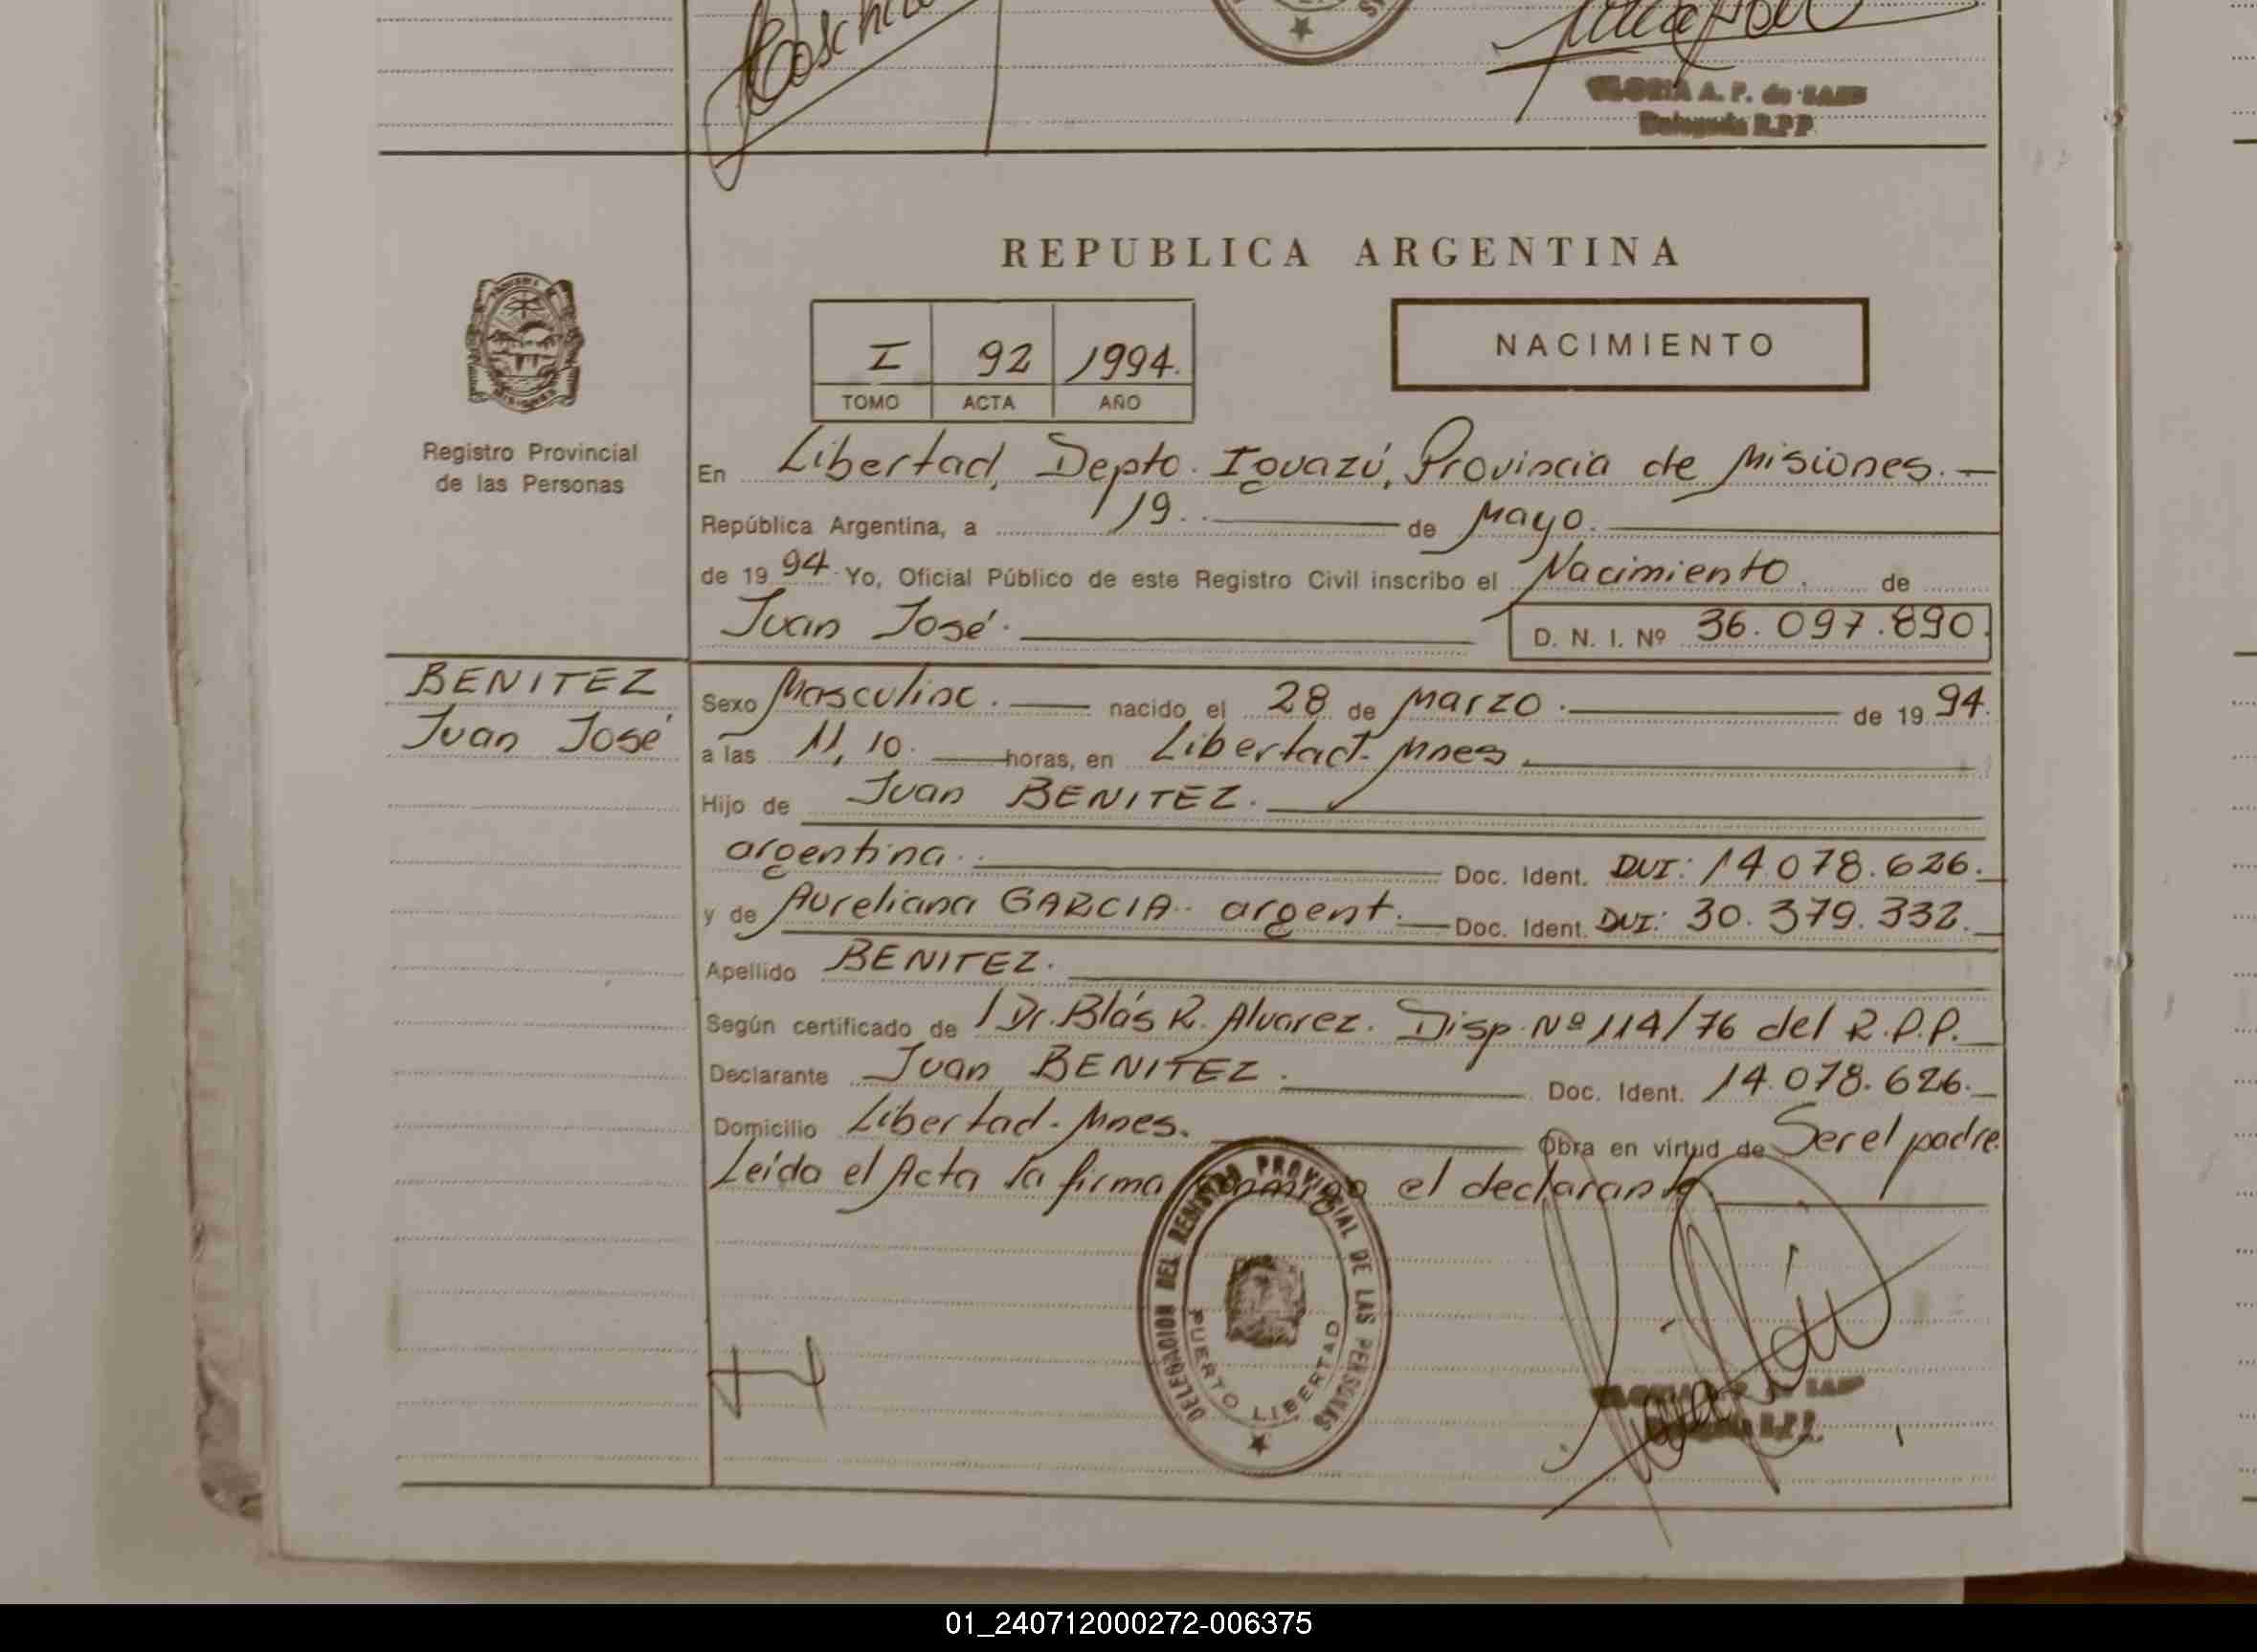 GLORIA A. P. de SAEZ
Delegada R.P.P.
REPUBLICA ARGENTINA
I 92 1994.
TOMO ACTA AÑO
NACIMIENTO
Registro Provincial
de las Personas
En Libertad, Depto. Iguazú, Provincia de Misiones.—
República Argentina, a 19. de Mayo.
de 1994 Yo, Oficial Público de este Registro Civil inscribo el Nacimiento. de
Juan José. D. N. I. Nº 36.097.890.
BENITEZ
Juan José
Sexo Masculino. nacido el 28 de Marzo. de 1994.
a las 11,10. horas, en Libertad- Mnes
Hijo de Juan BENITEZ.
argentina. Doc. Ident. DUI: 14.078.626.
y de Aureliana GARCIA- argent. Doc. Ident. DUI: 30.379.332.
Apellido BENITEZ.
Según certificado de Dr. Blás R. Alvarez. Disp. Nº 114/76 del R.P.P.
Declarante Juan BENITEZ. Doc. Ident. 14.078.626.
Domicilio Libertad- Mnes. Obra en virtud de Ser el padre
Leida el Acta la firma conmigo el declarante
DELEGACION DEL REGISTRO PROVINCIAL DE LAS PERSONAS
PUERTO LIBERTAD
GLORIA A. P. de SAEZ
Delegada R.P.P.
01_240712000272-006375